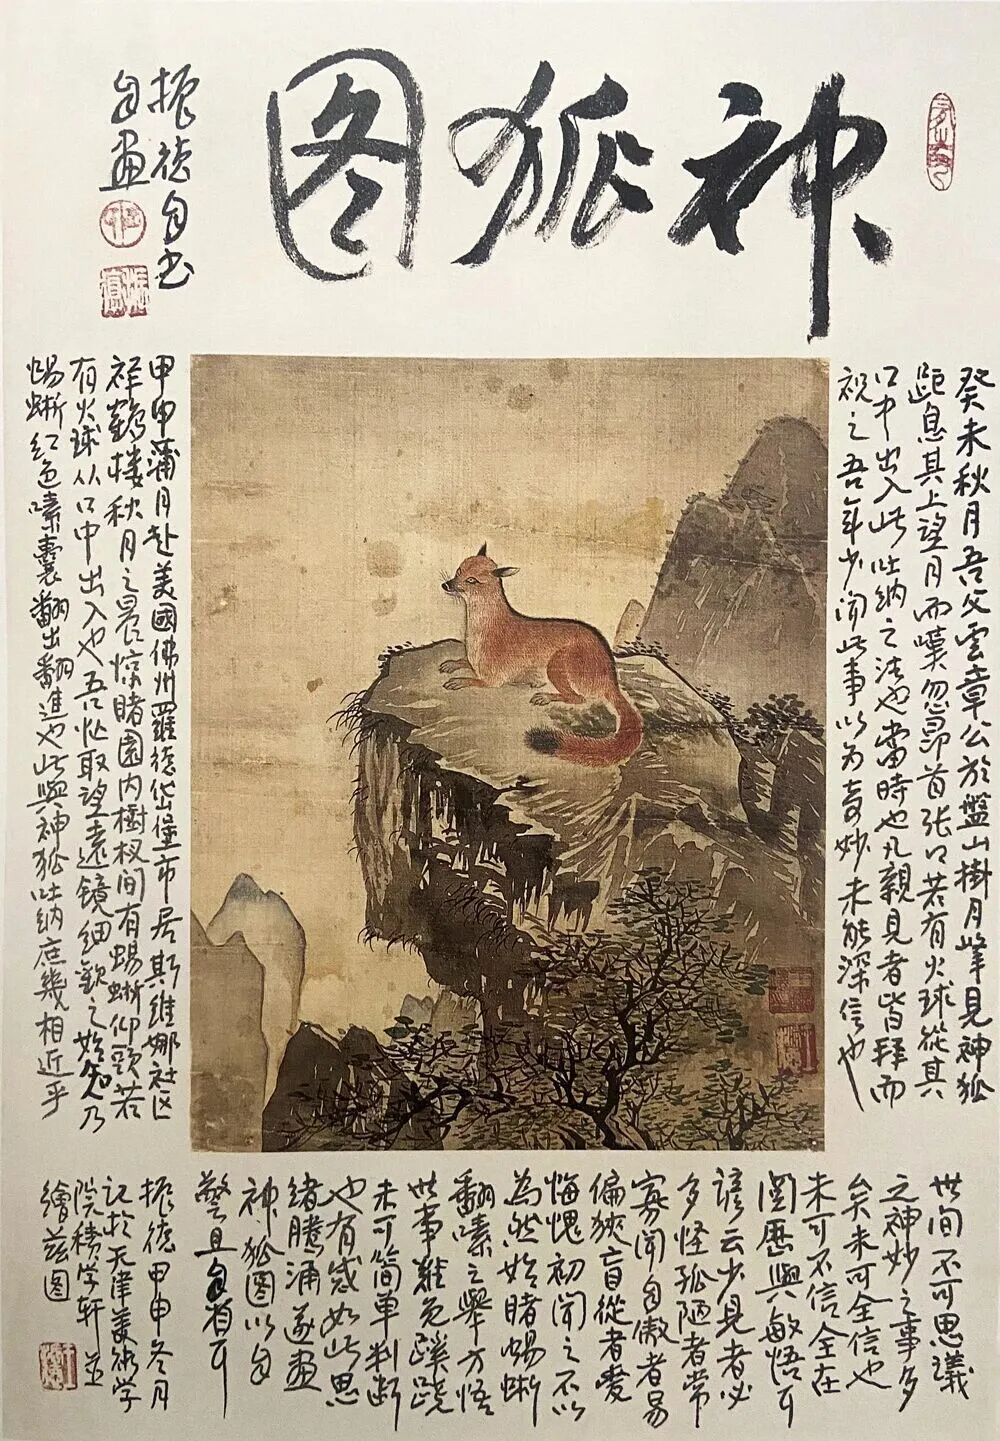 神狐图
振德自书
自画
癸未秋月吾父雲章公於盤山掛月峰見神狐
距息其上望月而嘆忽昂首张口若有火球從其
口中出入此吐纳之法也當時也凡親見者皆拜而
視之吾年少闻此事以为奇妙未能深信也
甲申蒲月赴美國佛州羅德岱堡市居斯维娜社区
祥鶴楼秋月之晨惊睹園内樹杈间有蜴蜥仰頭若
有火球从口中出入也吾忙取望遠镜细観之始知乃
蜴蜥红色嗉囊翻出翻進也此與神狐吐纳庶幾相近乎
世间不可思議
之神妙之事多
矣未可全信也
未可不信全在
閲歷與敏悟耳
諺云少見者必
多怪孤陋者常
寡闻自傲者易
偏狹盲從者愛
悔愧初闻之不以
為然始睹蜴蜥
翻嗉之舉方悟
世事難免蹊蹺
未可简单判断
也有感如此思
绪腾涌遂画
神狐图以自
警且自省耳
振德甲申冬月
记於天津美术学
院積学轩並
繪兹图